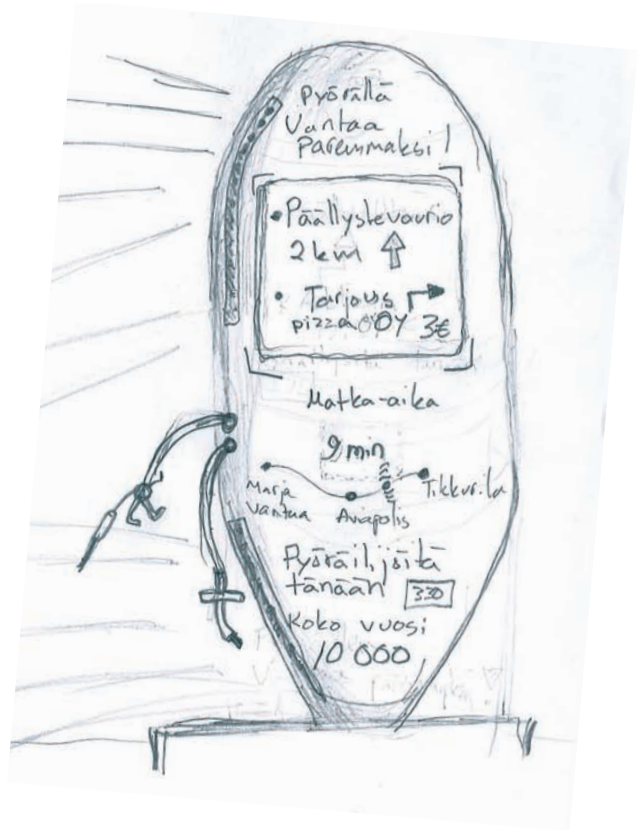 Pyörällä
Vantaa
Paremmaksi!
• Päällystevaurio
2 km ↑
• Tarjous ↱
pizza OY 3€
Matka-aika
9 min
Marja
Vantaa
Aviapolis
Tikkurila
Pyöräilijöitä
tänään 330
Koko vuosi
10 000